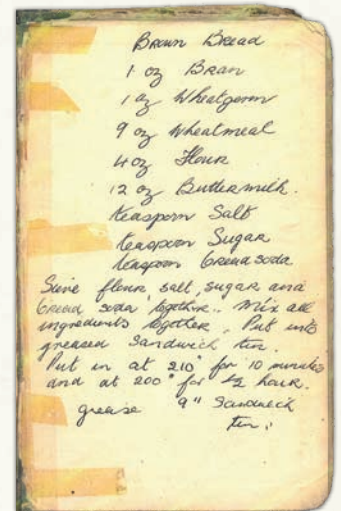 Brown Bread
1 oz Bran
1 oz Wheatgerm
9 oz Wheatmeal
4 oz Flour
12 oz Buttermilk.
teaspoon Salt
teaspoon Sugar
teaspoon bread soda
Sieve flour, salt, sugar and
bread soda together. Mix all
ingredients together. Put into
greased Sandwich tin.
Put in at 210° for 10 minutes
and at 200° for ½ hour.
grease 9" Sandwich
tin.